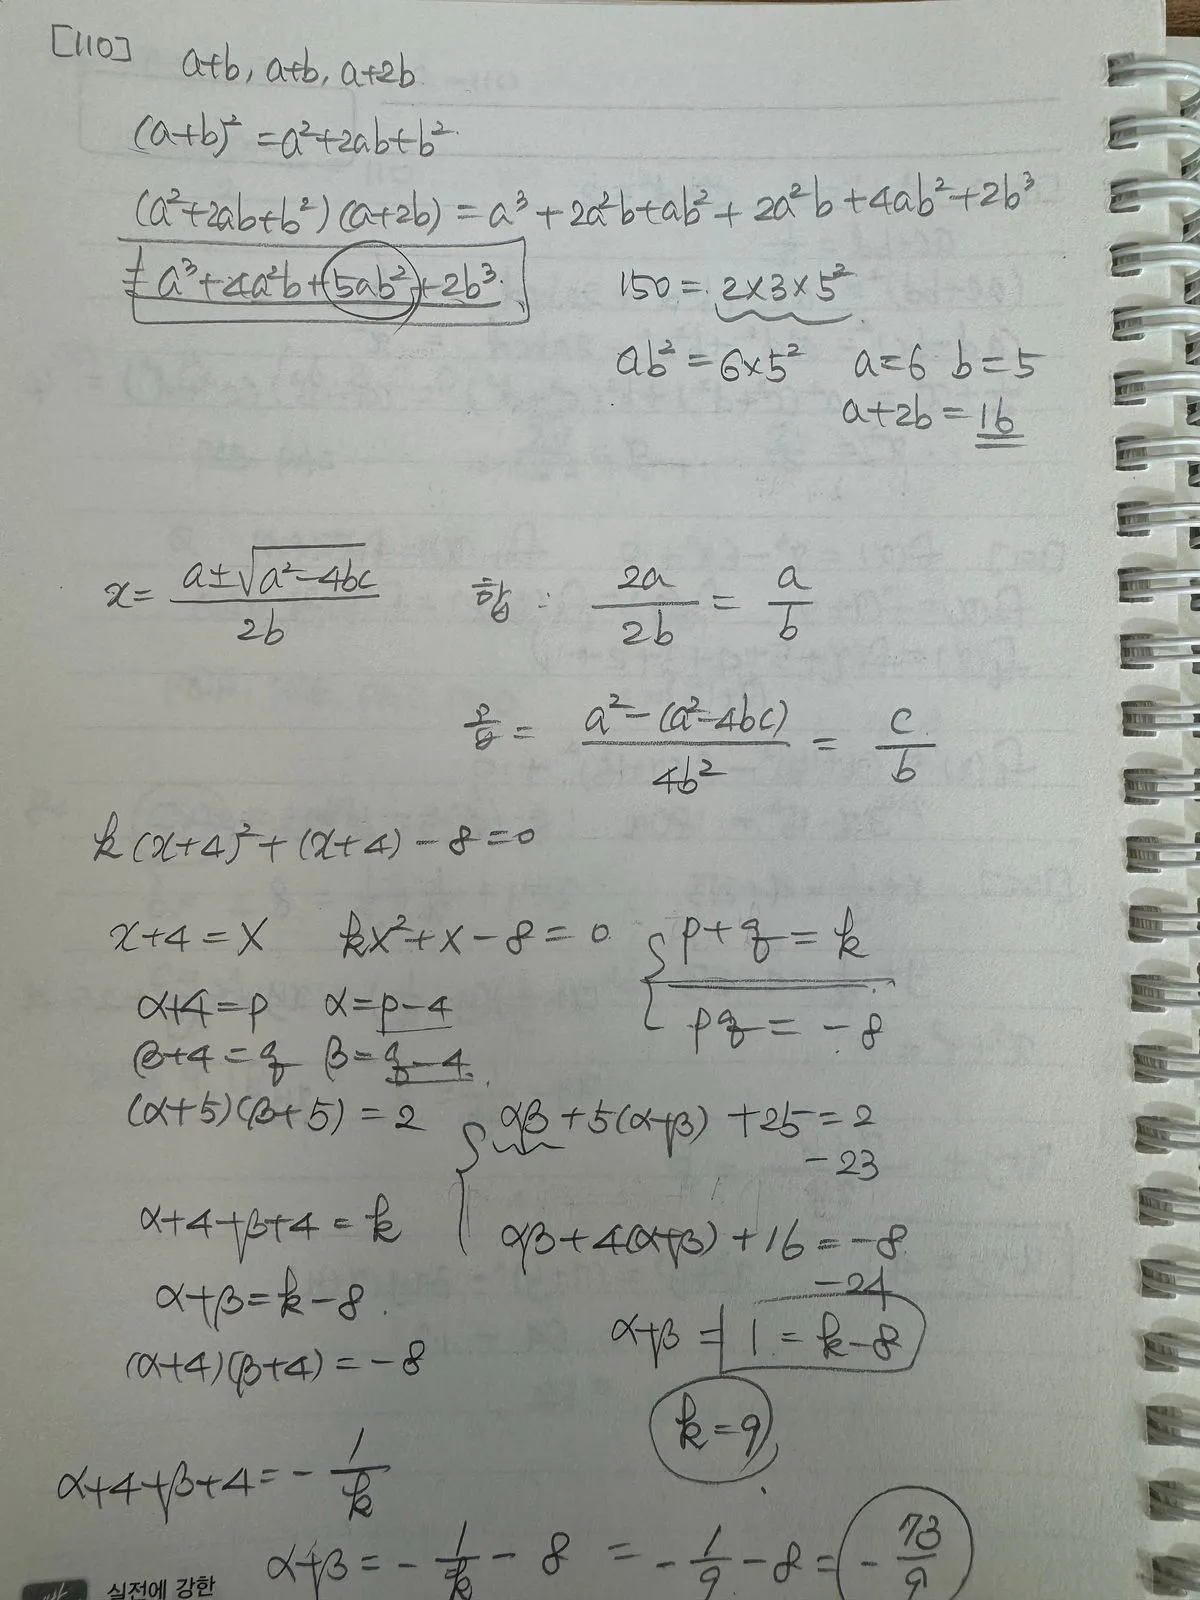 [110] a+b, a+b, a+2b
(a+b)² = a²+2ab+b²
(a²+2ab+b²)(a+2b) = a³+2a²b+ab²+2a²b+4ab²+2b³
= a³+4a²b+5ab²+2b³
150 = 2×3×5²
ab² = 6×5² a=6 b=5
a+2b = 16
x = (a±√(a²-4bc))/2b 합 : 2a/2b = a/b
곱 = (a²-(a²-4bc))/4b² = c/b
k(x+4)²+(x+4)-8=0
x+4=X kX²+X-8=0 p+q=k
α+4=p α=p-4 pq=-8
β+4=q β=q-4
(α+5)(β+5)=2 αβ+5(α+β)+25=2
-23
α+4+β+4=k αβ+4(α+β)+16=-8
-24
α+β=k-8 α+β=1=k-8
(α+4)(β+4)=-8
k=9
α+4+β+4=-1/k
α+β=-1/k-8 = -1/9-8 = -73/9
실전에 강한